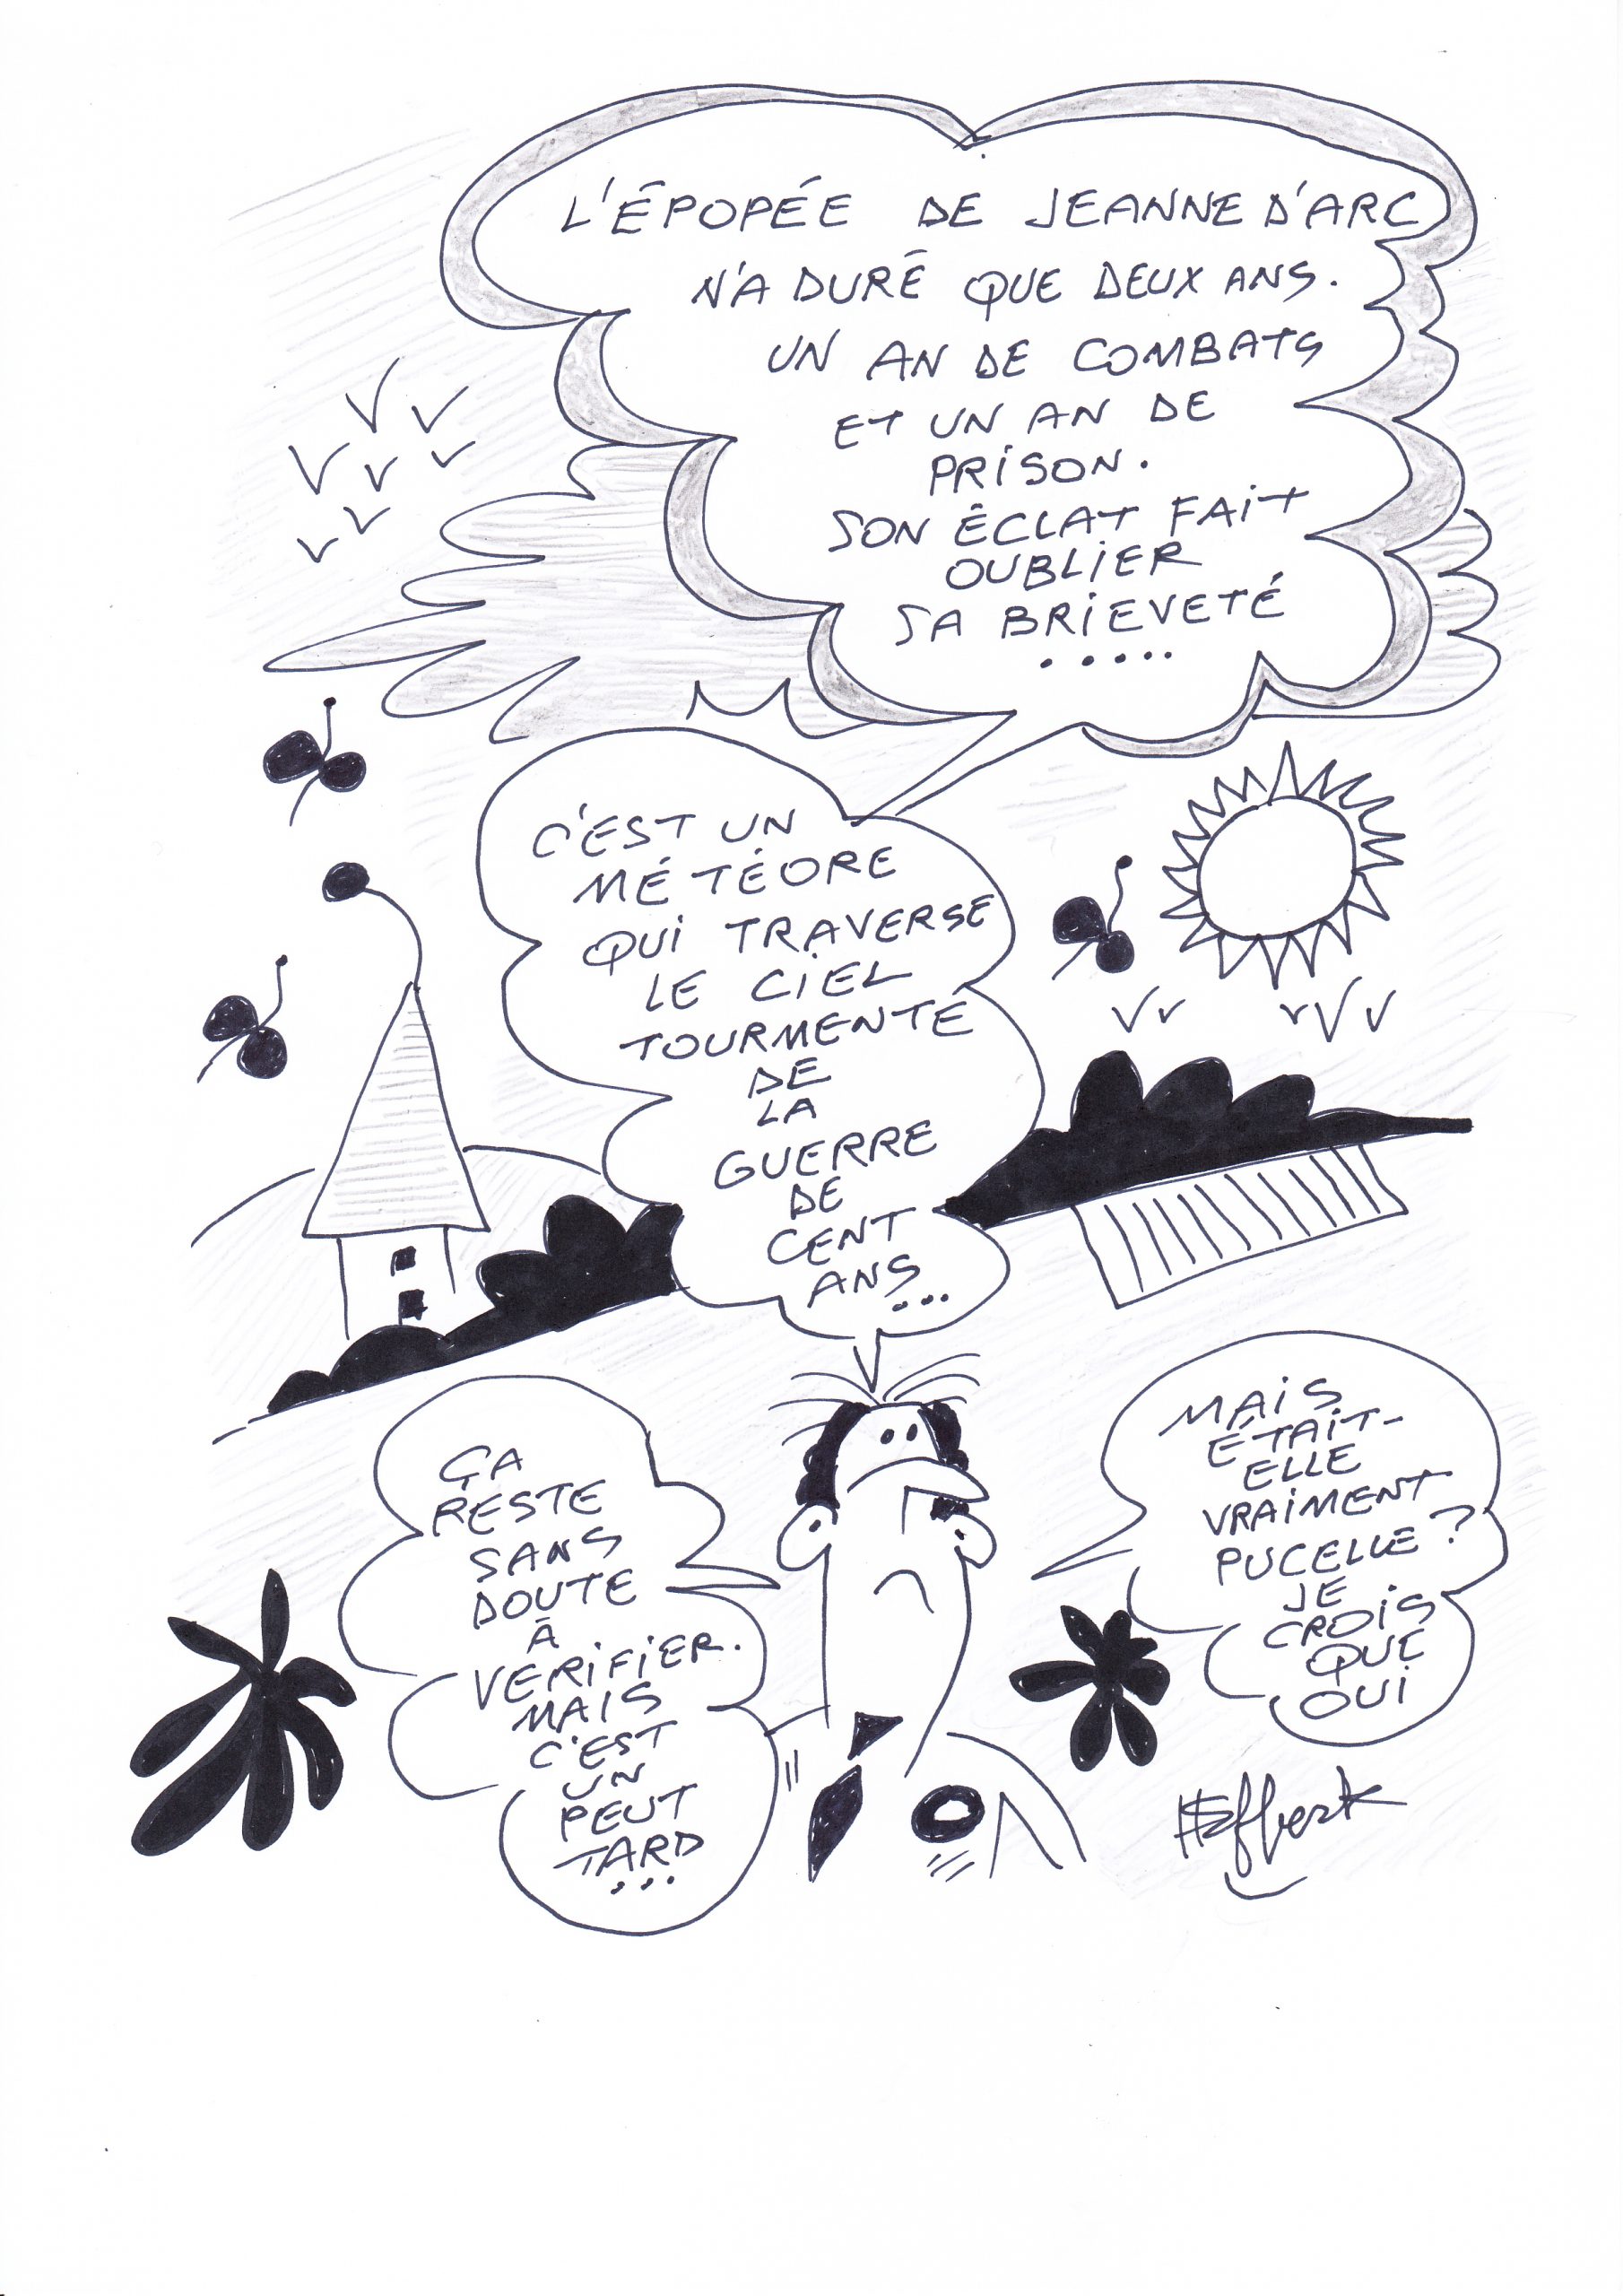 L'ÉPOPÉE DE JEANNE D'ARC
N'A DURÉ QUE DEUX ANS.
UN AN DE COMBATS
ET UN AN DE
PRISON.
SON ÉCLAT FAIT
OUBLIER
SA BRIEVETÉ
.....
C'EST UN
MÉTÉORE
QUI TRAVERSE
LE CIEL
TOURMENTÉ
DE
LA
GUERRE
DE
CENT
ANS...
MAIS
ÉTAIT-
ELLE
VRAIMENT
PUCELLE?
JE
CROIS
QUE
OUI
ÇA
RESTE
SANS
DOUTE
À
VÉRIFIER.
MAIS
C'EST
UN
PEUT
TARD
...